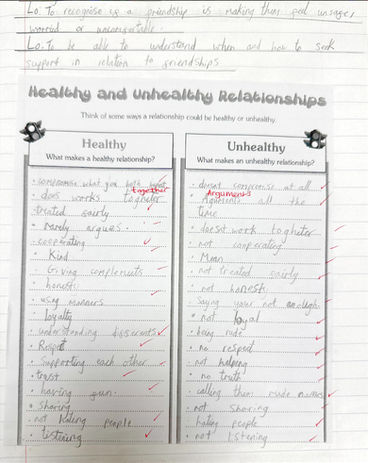 Lo: To recognise if a friendship is making them feel unsafe,
worried or uncomfortable.
Lo: To be able to understand when and how to seek
support in relation to friendships
Healthy and Unhealthy Relationships
Think of some ways a relationship could be healthy or unhealthy.
Healthy
What makes a healthy relationship?
• compromise what you both want
together
• does works togheter
• treated fairly
• rarely argues
• cooperating
• Kind
• Giving complements
• honesti
• using manners
• loyalty
• understanding differents
• Respect
• Supporting each other
• trust
• having fun.
• Sharing
• not hating people
• listening
Unhealthy
What makes an unhealthy relationship?
• doesnt compromise at all
Arguments
• Aguments all the
time
• doesnt work togheter
• not cooperating
• Mean
• not treated fairly
• not honesti
• Saying your not enough
• not loyal
• being rude
• no respect
• not helping
• no truth
• calling them rude names
• not Sharing
• hating people
• not listening